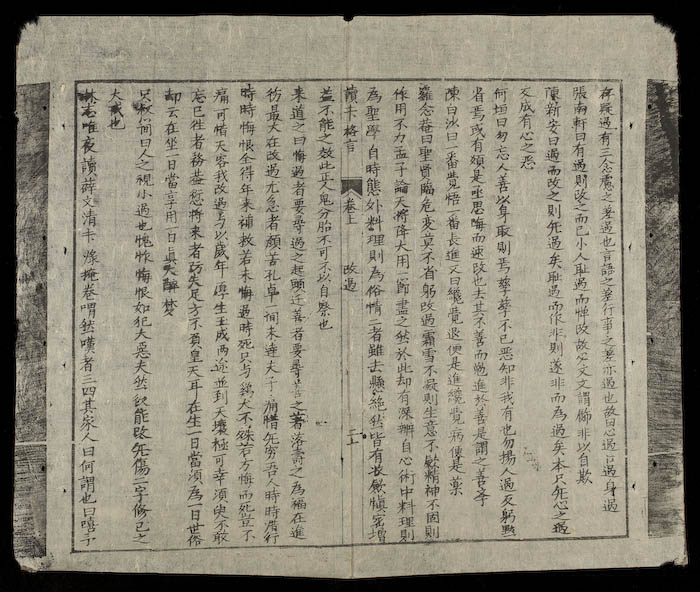 存疑過有三念慮之差過也言語之差行事之差亦過也故曰心過口過身過
張南軒曰有過則改之而已小人恥過而憚改故必文文謂飾非以自欺
陳新安曰過而改之則无過矣恥過而作非則遂非而為過矣本只无心之過
又成有心之惡
何垣曰勿忘人善以身取則焉孳孳不已惡知非我有也勿揚人過反躬點
省焉或有類是亟思悔而速改也去其不善而勉進於善是謂之善学
陳白沙曰一番覺悟一番長進又曰纔覺退便是進纔覺病便是藥
羅念菴曰聖賢臨危變莫不省躬改過霜雪不凝則生意不歛精神不固則
作用不力孟子論天將降大用一節盡之然於此却有深辨自心術中料理則
為聖學自時態外料理則為俗情二者雖去懸絶然皆有收歛慎密增
讀书格言 卷上 改過 二十
益不能之效此正人鬼分胎不可不以自察也
来道之曰悔過者要尋過之起頭迁善者要尋善之著落壽之為福在進
彷最大在改過尤急者顏苦孔卓一间未達夫子痛惜无穷吾人時時潜行
時時悔恨全得年来補救若未悔過時死只与鷄犬不殊若方悔而死豈不
痛可惜天容我改過与以歲年 生成两途並到天壤極可幸須史不敢
忘已徃者務盖愆将来者防失足方不負皇天耳在生一日當須為一日世俗
却云在生一日當享用一日真夫醉梦
只叔简曰人之視小過也愧怍悔恨如犯大惡夫然後能改无傷二字修己之
大戒也
林志唯夜讀薛文清书 掩卷喟然嘆者三四其家人曰何謂也曰嘻予